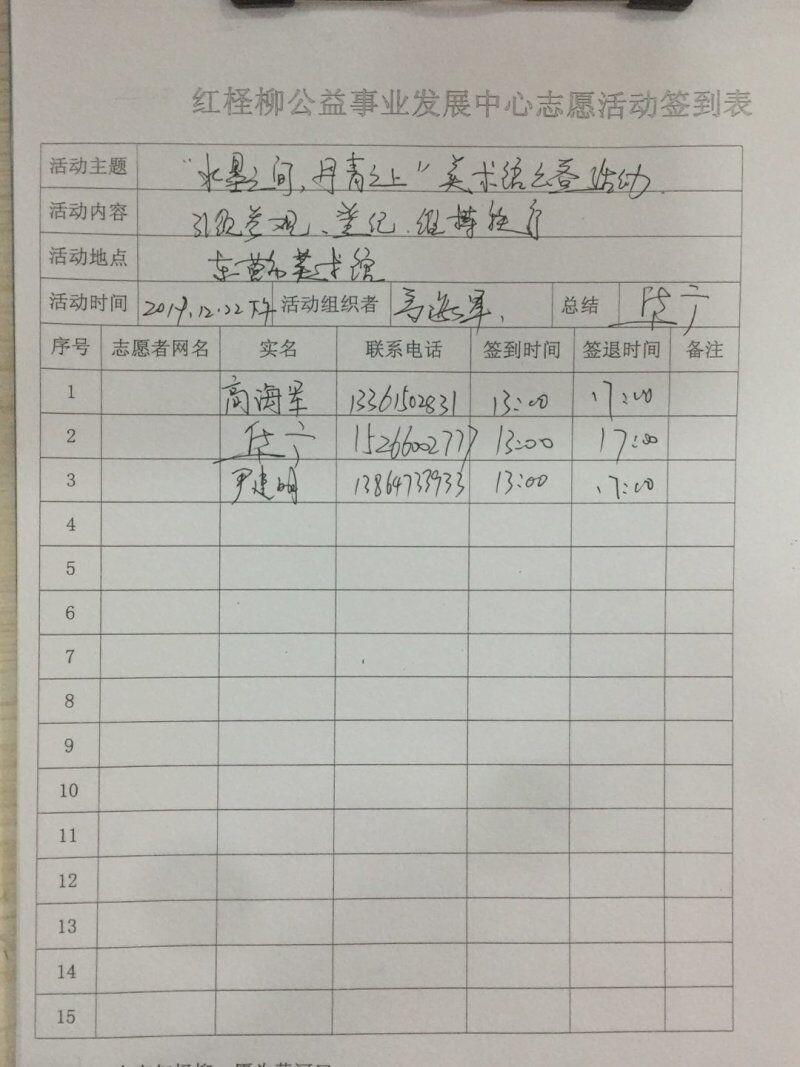 红柽柳公益事业发展中心志愿活动签到表
活动主题 “水墨之间，丹青之上”美术馆公益活动
活动内容 引领参观、登记、维持秩序
活动地点 东营市美术馆
活动时间 2019.12.22下午 活动组织者 高海军 总结
序号 志愿者网名 实名 联系电话 签到时间 签退时间 备注
1 高海军 13361502831 13:00 17:00
2 15266002777 13:00 17:00
3 尹建明 13864733933 13:00 17:00
4
5
6
7
8
9
10
11
12
13
14
15